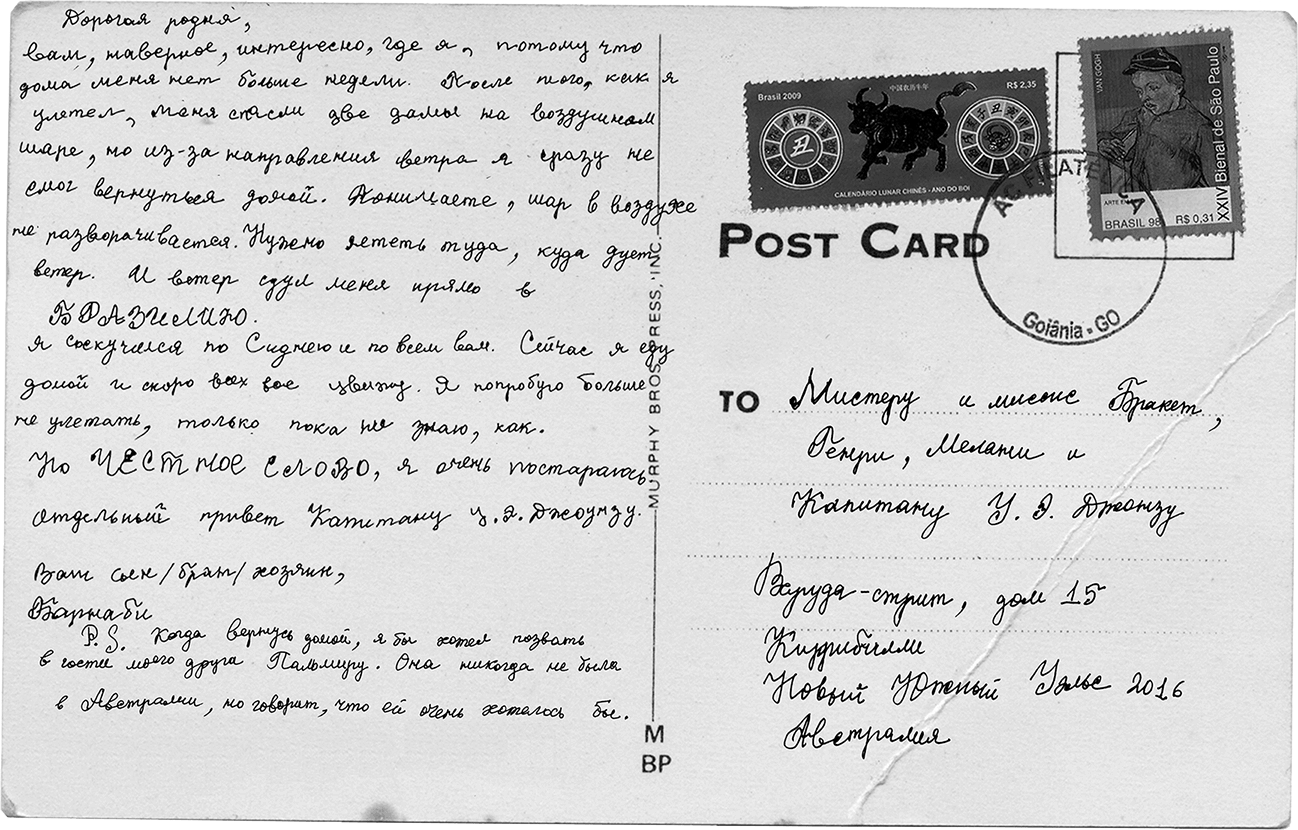 Дорогая родня,
вам, наверное, интересно, где я, потому что
дома меня нет больше недели. После того, как я
улетел, меня спасли две дамы на воздушном
шаре, но из-за направления ветра я сразу не
смог вернуться домой. Понимаете, шар в воздухе
не разворачивается. Нужно лететь туда, куда дует
ветер. И ветер сдул меня прямо в
БРАЗИЛИЮ.
Я соскучился по Сиднею и по всем вам. Сейчас я еду
домой и скоро всех вас увижу. Я попробую больше
не улетать, только пока не знаю, как.
Но ЧЕСТНОЕ СЛОВО, я очень постараюсь
Отдельный привет Капитану У. Э. Джоунзу.
Ваш сын/брат/хозяин,
Барнаби
P.S. Когда вернусь домой, я бы хотел позвать
в гости моего друга Пальмиру. Она никогда не была
в Австралии, но говорит, что ей очень хотелось бы.
MURPHY BROS. PRESS, INC.
M
BP
Brasil 2009
中国农历牛年
R$ 2,35
丑
CALENDÁRIO LUNAR CHINÊS - ANO DO BOI
VAN GOGH
XXIV Bienal de São Paulo
BRASIL 98 R$ 0,31
Goiânia - GO
POST CARD
TO Мистеру и миссис Бракет,
Генри, Мелани и
Капитану У. Э. Джонзу
Вуруда-стрит, дом 15
Киррибилли
Новый Южный Уэльс 2016
Австралия